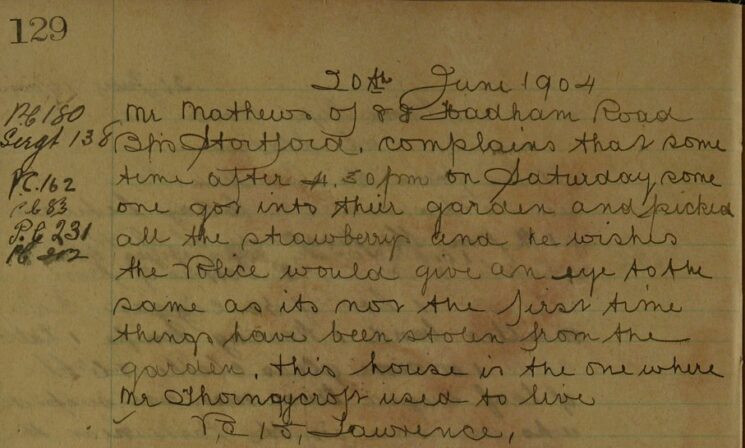 129
20th June 1904
P.C 180
Mr Mathews of 88 Hadham Road
Sergt 138
Bps Stortford. complains that some
P.C. 162
time after 4.30pm on Saturday some
P.C 83
one got into their garden and picked
P.C 231
all the strawberrys and he wishes
P.C 202
the Police would give an eye to the
same as its not the first time
things have been stolen from the
garden. this house is the one where
Mr Thorneycroft used to live
P.C 15, Lawrence,